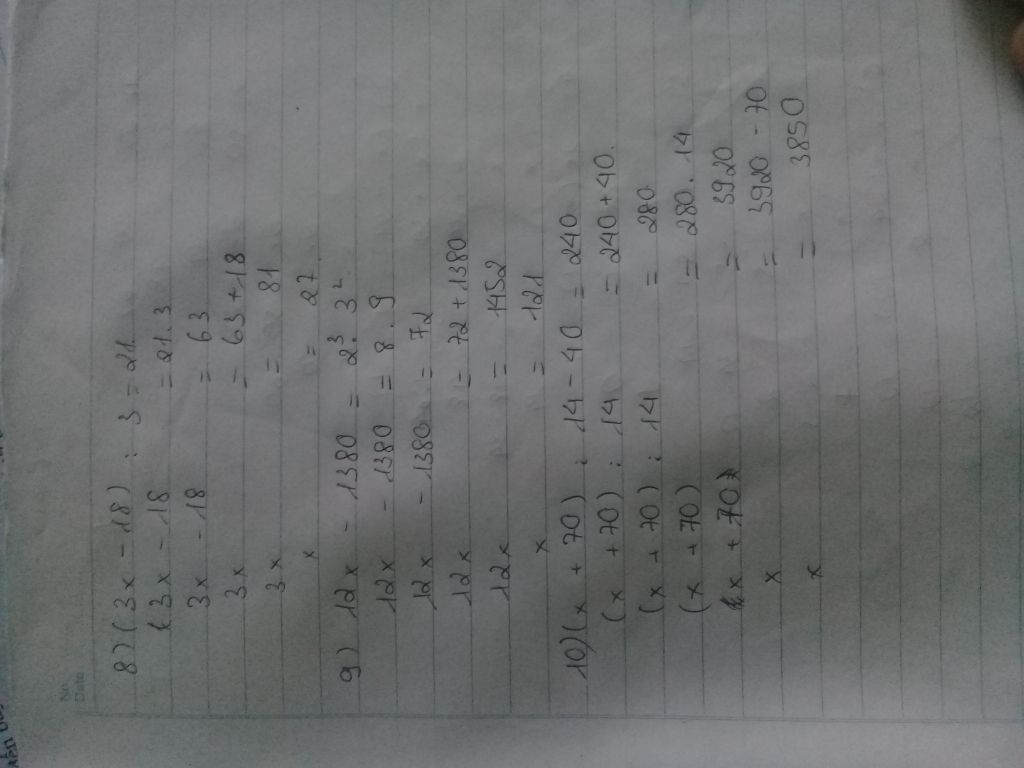 No.
Date
8) (3x - 18) : 3 = 21
(3x - 18 = 21.3
3x - 18 = 63
3x = 63 + 18
3x = 81
x = 27
9) 12x - 1380 = 2³. 3²
12x - 1380 = 8. 9
12x - 1380 = 72
12x = 72 + 1380
12x = 1452
x = 121
10) (x + 70) : 14 - 40 = 240
(x + 70) : 14 = 240 + 40.
(x + 70) : 14 = 280
(x + 70) = 280. 14
x + 70 = 3920
x = 3920 - 70
x = 3850